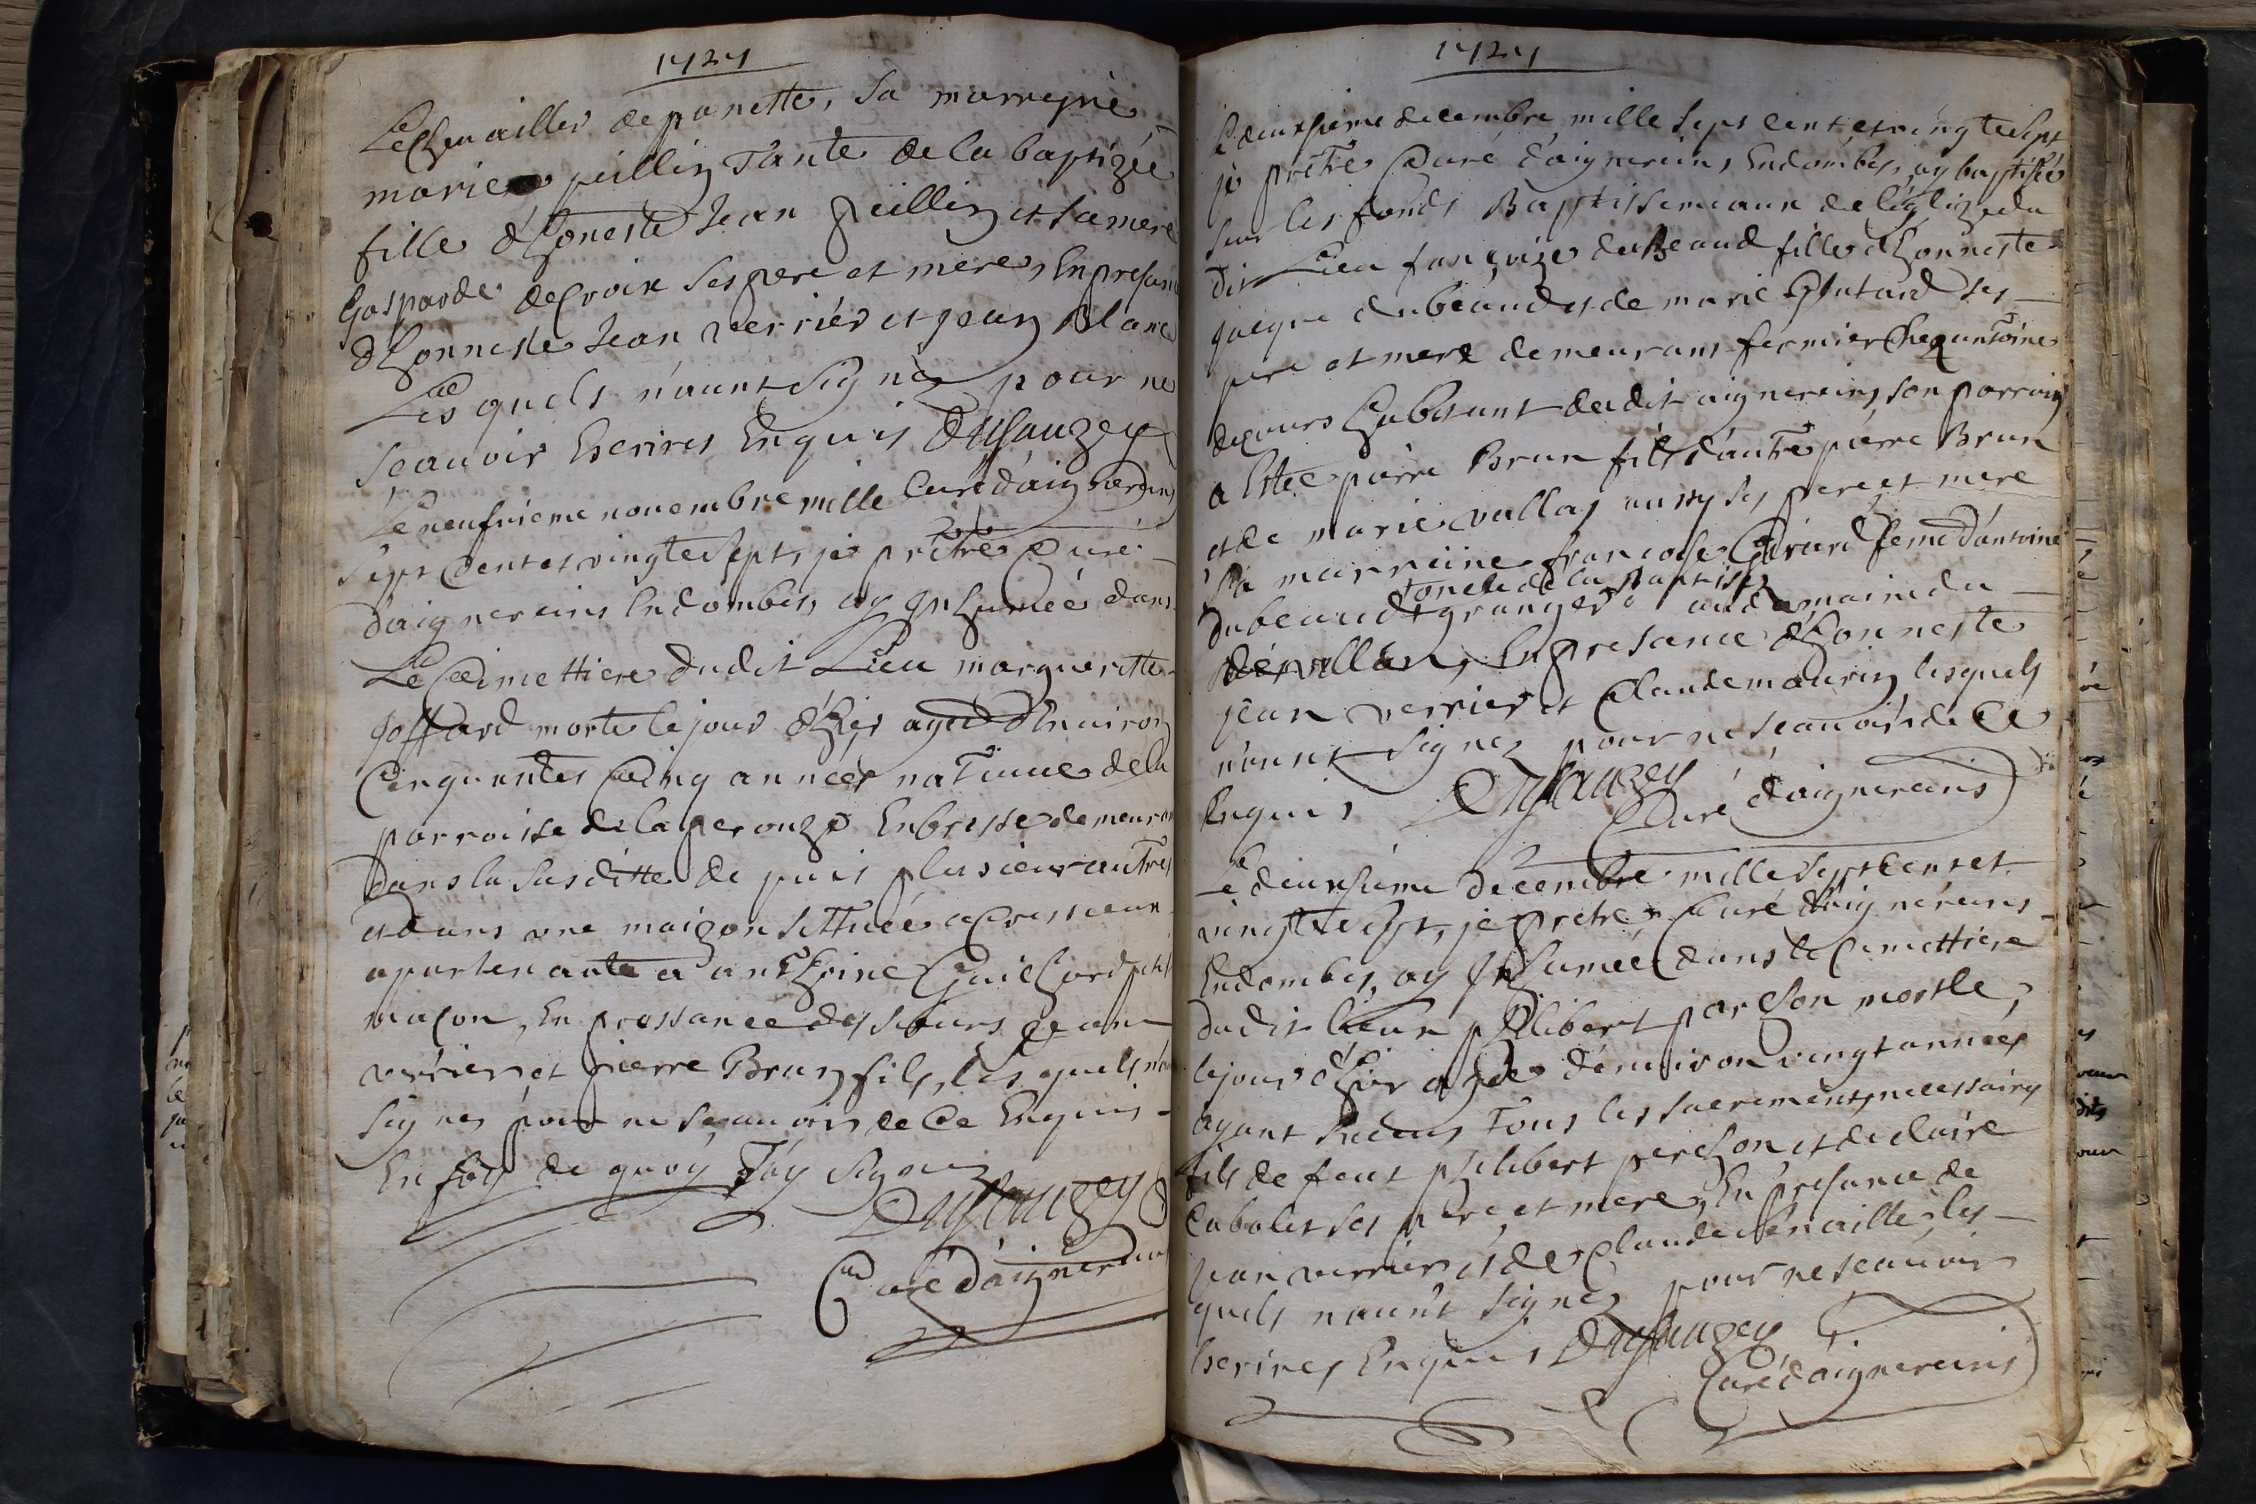 1727
Le Chevaillier de ponette, sa marreine
marie peillin Tante de la baptizée
fille d'honeste Jean peillin et sa mere
Gasparde decroix ses pere et mere, En presance
d'honneste Jean verrier et jean Blanc
Lesquels n'aunt signez pour ne
scauoir Escrires Enquis Dusauzey
Curé d'aignereins
Le neufuieme nouembre mille
sept Cent et vingte sept, je prêtre Curé
d'aignereins En dombes, ay Inhumée dans
Le Cimettiere dudit Lieu margueritte
goffard morte le jour d'hier agée d'Enuiron
Cinquantes Cinq années natiuue de la
parroisse de la perouze En bresse demeurant
dans la susditte de puis plusieur autres
et dans une maizon sittuée a Cressieux
apartenante a anthoine Guilhard petit
maçon, En pressance des sieurs jean
verrier et pierre Brun fils, les quels n'
signes pour ne scauoir de Ce Enquis
En foy de quoy J'ay signe
Dusauzey
Curé d'aignereins
1727
Le deuxsieme decembre mille sept cent et vingte sept
je prêtre Curé d'aignereins En dombes, ay baptisée
sur les fonds Baptissemeaux de l'église du
dit Lieu françoize dubeaud fille d'honneste
jacque dubeaud et de marie ses
pere et mere demeurans fermier Chez antoine
decours habitant dudit aignereins, son parrain
a Estée pierre Brun fils d'autre pierre Brun
et de marie vallas aussy ses pere et mere
Sa marreine francoise Girard feme d'antoine
dubeaud granger au domaine du
oncle de la Baptisée
, En presance d'honneste
jean verrier et Claude maurin lesquels
n'aunt signez pour ne scauoir de Ce
Enquis Dusauzey
Curé d'aignereins
Le deuxsieme decembre mille sept Cent et
vingte sept, je prêtre Curé d'aignereins
En dombes, ay Inhumée dans le Cimettiere
dudit lieux philibert person mostle,
le jour d'hier agée d'enuiron vingt années
ayant Receus Tous les sacrements necessaires
fils de feut philibert perchon et de claire
Cabolet ses pere et mere, En presance de
jean verrier et de Claude les
quels naunt signez pour ne scauoir
Escrires Enquis Dusauzey
Curé d'aignereins